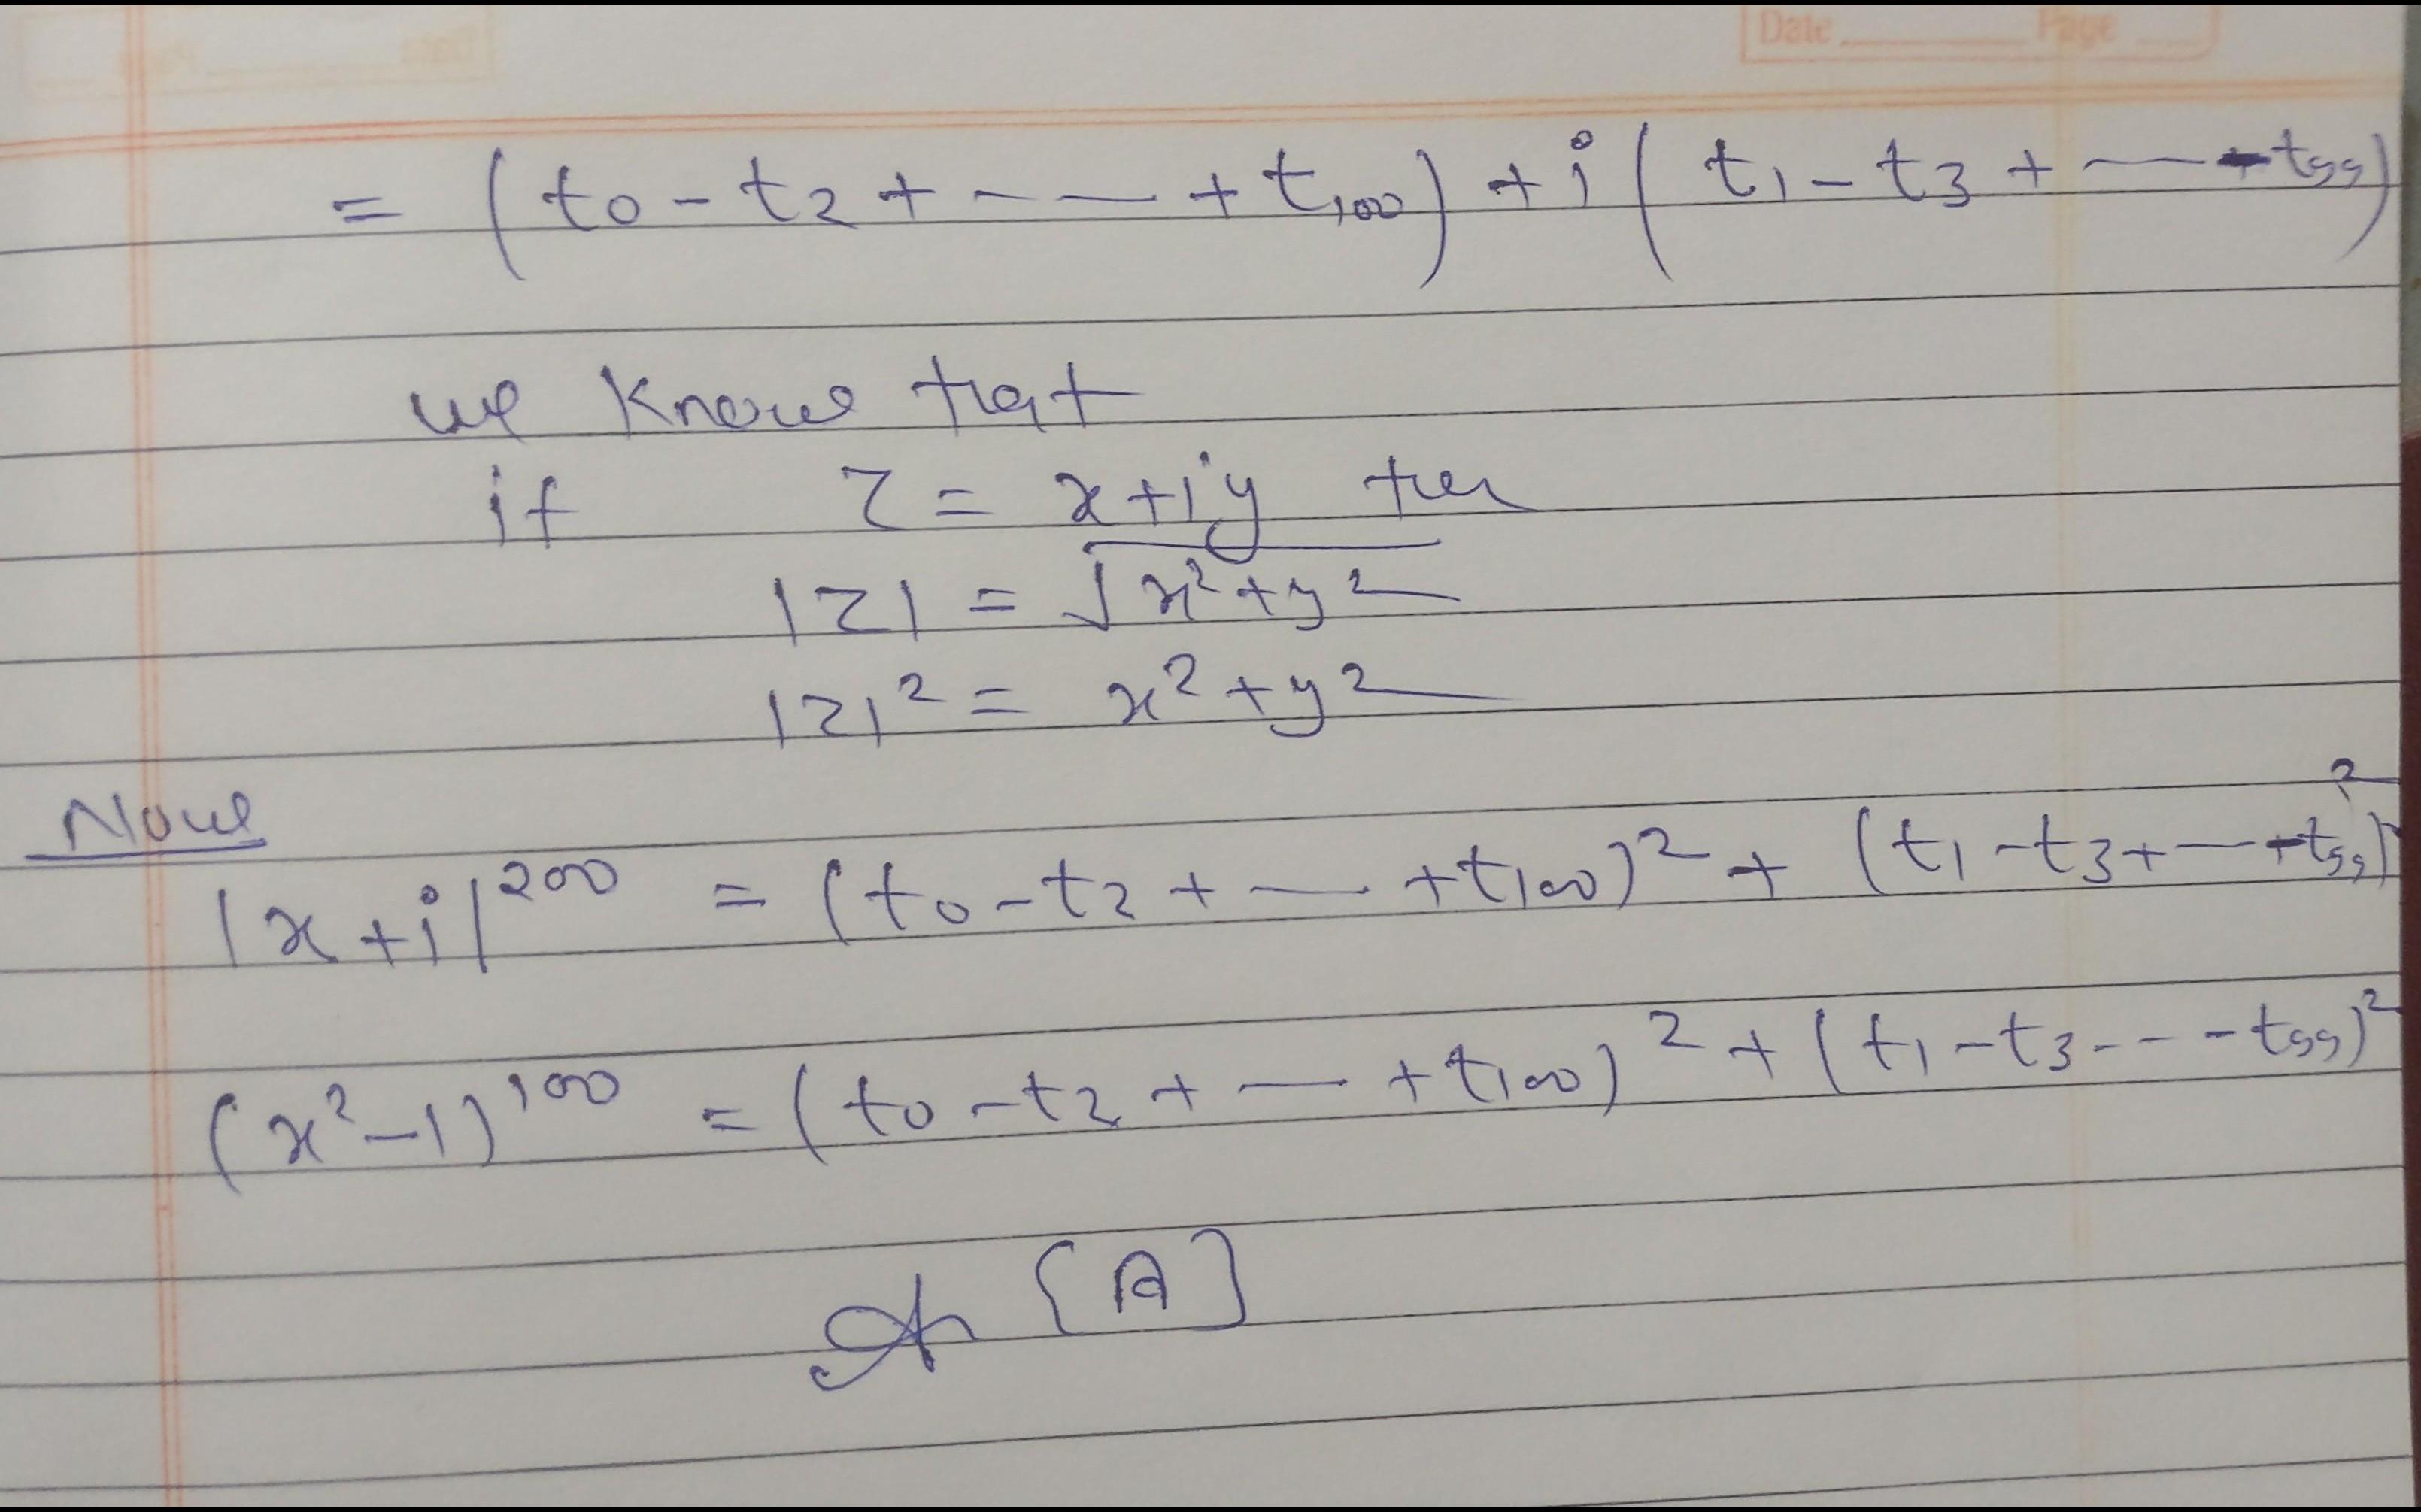 Date Page
= (t₀ - t₂ + - — + t₁₀₀) + i (t₁ - t₃ + — - t₉₉)
we know that
if z = x+iy then
|z| = √x²+y²
|z|² = x²+y²
Now
|x+i|²⁰⁰ = (t₀-t₂ + — +t₁₀₀)² + (t₁-t₃+ — +t₉₉)²
(x²-1)¹⁰⁰ = (t₀-t₂ + — +t₁₀₀)² + (t₁-t₃- - - -t₉₉)²
[A]